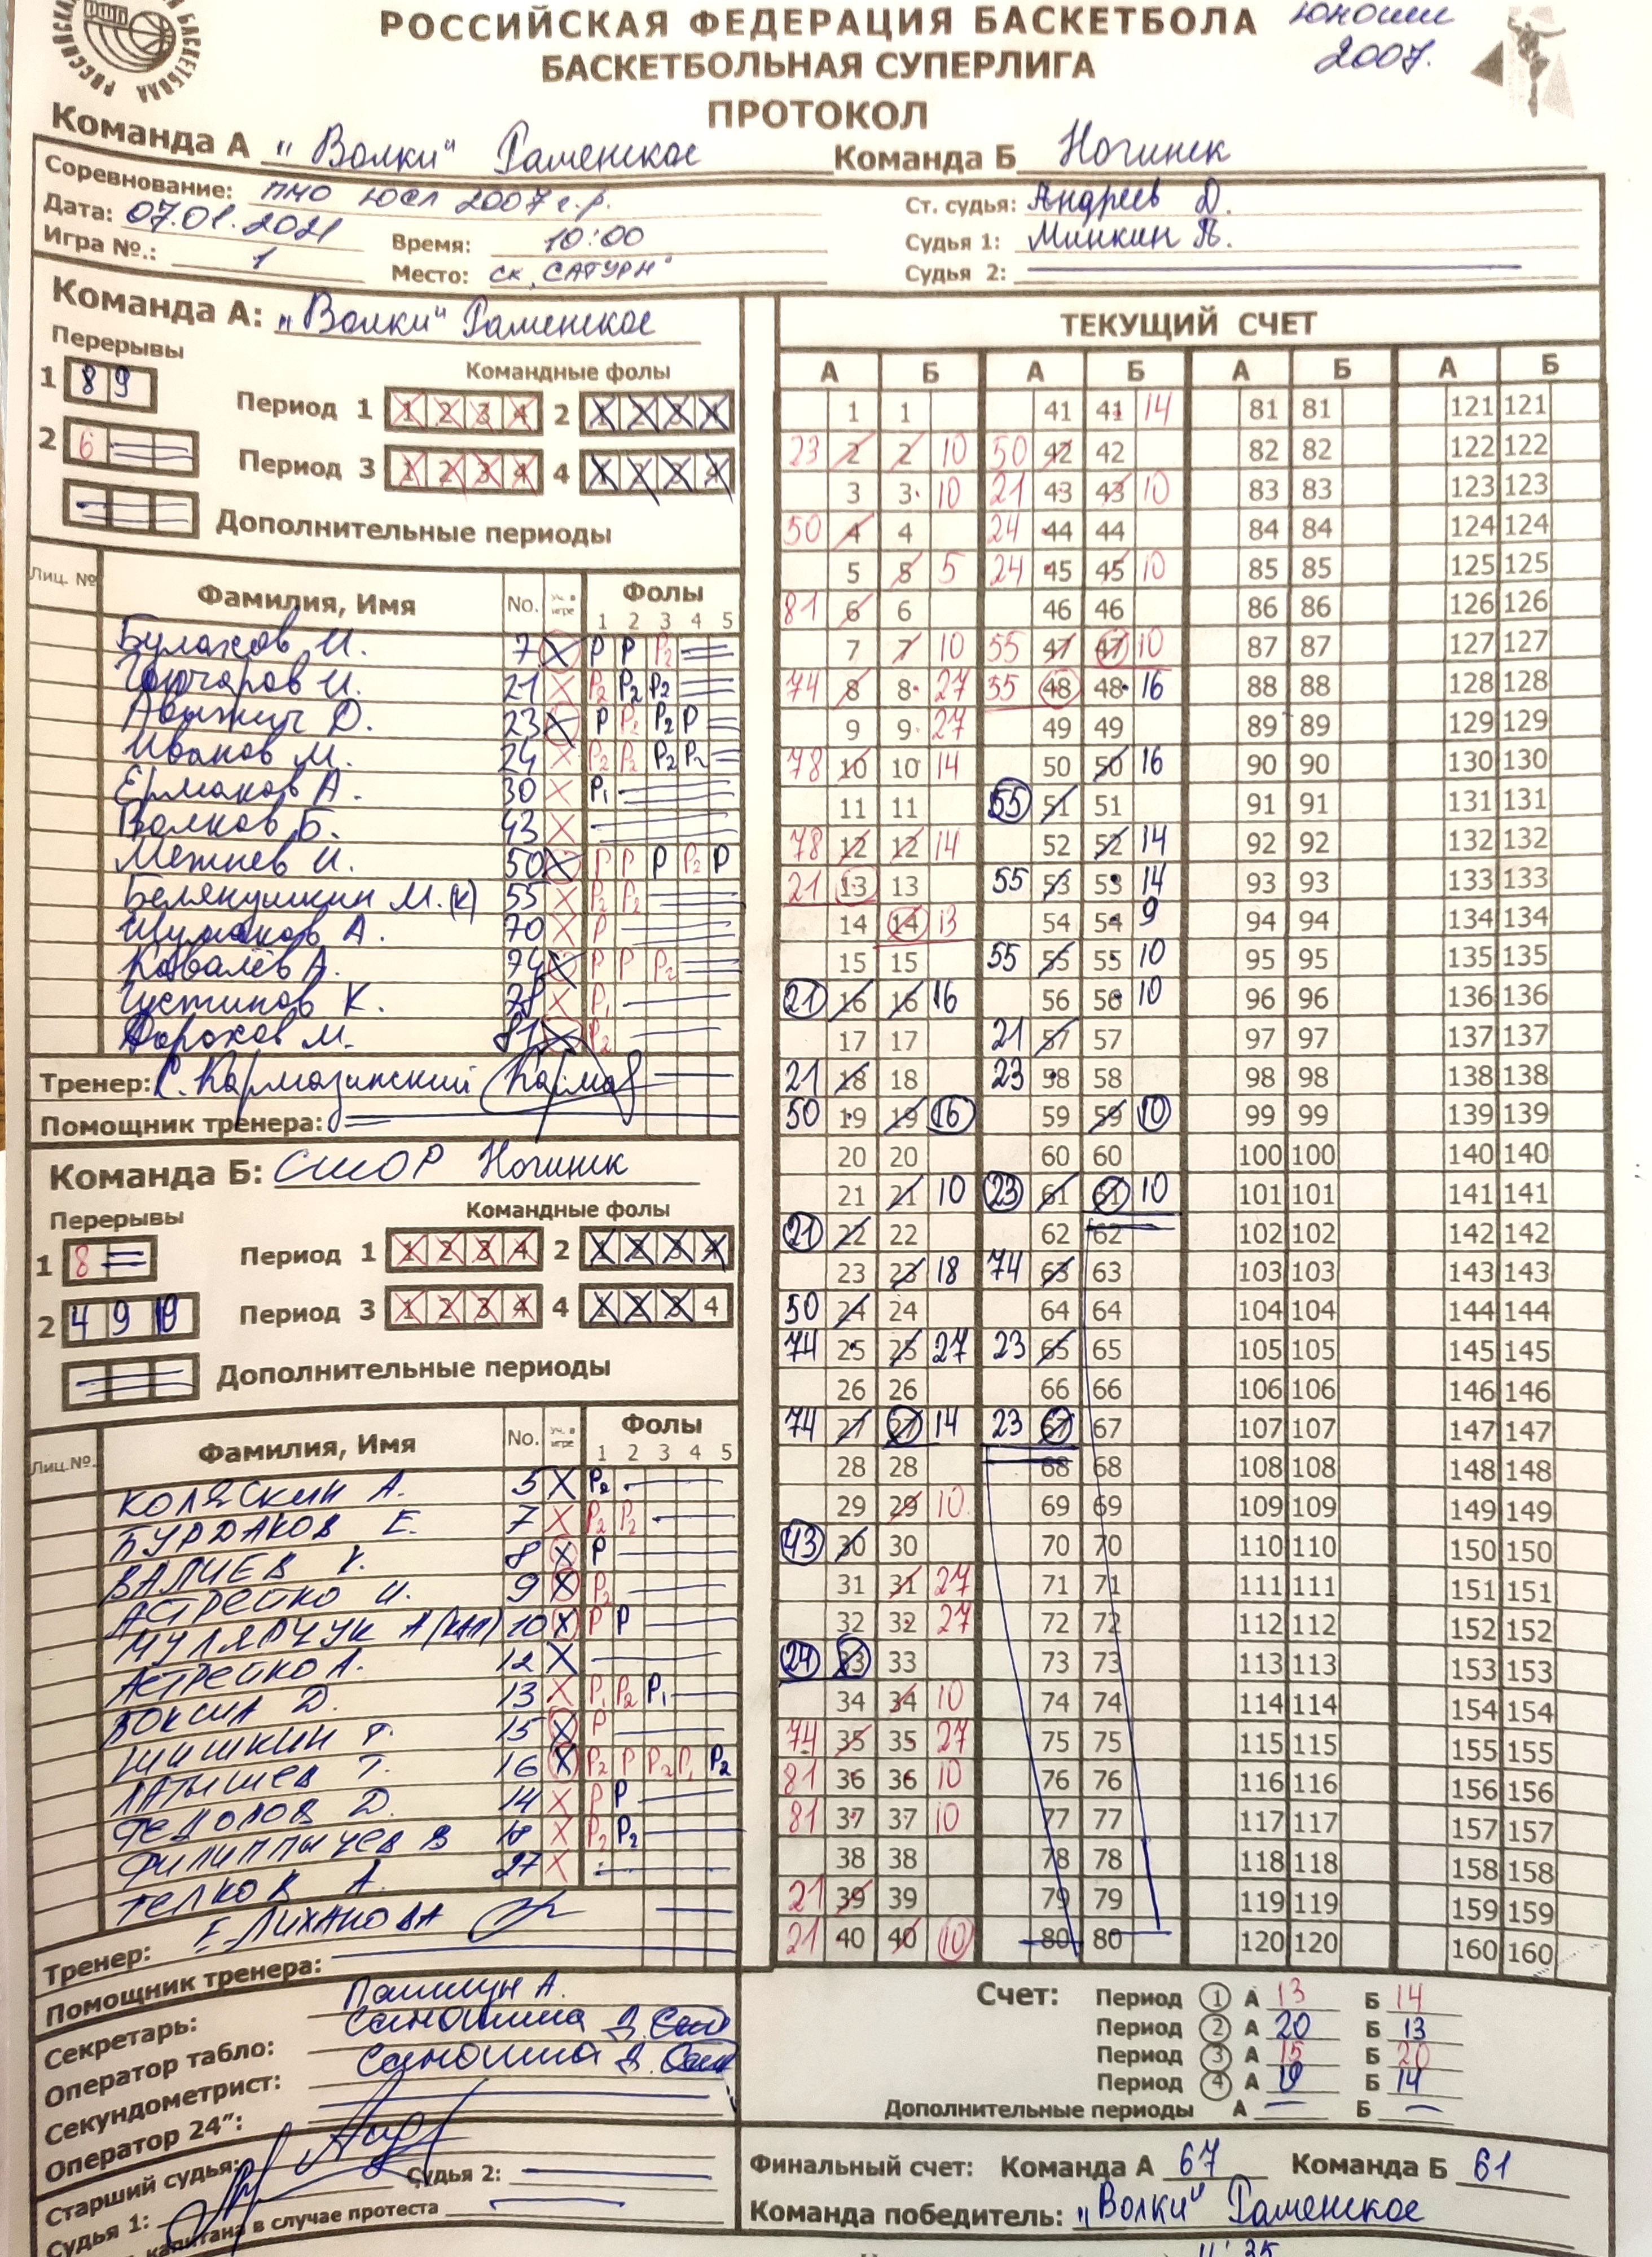 РОССИЙСКАЯ ФЕДЕРАЦИЯ БАСКЕТБОЛА юноши
БАСКЕТБОЛЬНАЯ СУПЕРЛИГА 2007г.
ПРОТОКОЛ
Команда А "Волки" Раменское Команда Б Ногинск
Соревнование: ПМО ЮБЛ 2007 г.р. Ст. судья: Андреев Д.
Дата: 07.01.2021 Время: 10:00 Судья 1: Минкин П.
Игра №.: 1 Место: СК "САТУРН" Судья 2:
Команда А: "Волки" Раменское
Перерывы Командные фолы
1 8 9 Период 1 1 2 3 4 2 1 2 3 4
2 6 Период 3 1 2 3 4 4 1 2 3 4
Дополнительные периоды
Лиц. № Фамилия, Имя No. Уч. в игре Фолы
1 2 3 4 5
Булахов И. 7 X P P P2
Гончаров И. 21 X P2 P2 P2
Д. 23 X P P2 P2 P
Иванов М. 24 X P2 P2 P2 P2
Ермаков А. 30 X P1
Волков Б. 43 X
И. 50 X P P P P2 P
Белянушкин М. (к) 55 X P2 P2
Шумаков А. 70 X P
Ковалёв А. 74 X P P P2
Устинов К. 78 X P1
Дорохов М. 81 X P2
Тренер: С. Кармазинский
Помощник тренера:
Команда Б: СШОР Ногинск
Перерывы Командные фолы
1 8 Период 1 1 2 3 4 2 1 2 3 4
2 4 9 10 Период 3 1 2 3 4 4 1 2 3 4
Дополнительные периоды
Лиц.№. Фамилия, Имя No. Уч. в игре Фолы
1 2 3 4 5
КОЛЯСКИН А. 5 X P2
БУРДАКОВ Е. 7 X P2 P2
ВАЛИЕВ 8 X P
АСТРЕЙКО И. 9 X P2
МУЛЯРЧУК А (КАП) 10 X P P
АСТРЕЙКО А. 12 X
БОКСИЛ Д. 13 X P1 P2 P1
ШИШКИН Т. 15 X P
ЛАТЫШЕВ Т. 16 X P2 P P2 P1 P2
ФЕДОЛОВ Д. 14 X P P
ФИЛИППЫЧЕВ В 18 X P2 P2
ТЕЛКОВ А. 27 X
Тренер: Е. ЛИХАНОВА
Помощник тренера:
Секретарь: Пашкун А.
Оператор табло:
Секундометрист:
Оператор 24":
Старший судья: Судья 2:
Судья 1:
капитана в случае протеста
ТЕКУЩИЙ СЧЕТ
А Б А Б А Б А Б
1 1 41 41 14 81 81 121 121
23 2 2 10 50 42 42 82 82 122 122
3 3 10 21 43 43 10 83 83 123 123
50 4 4 24 44 44 84 84 124 124
5 5 5 24 45 45 10 85 85 125 125
81 6 6 46 46 86 86 126 126
7 7 10 55 47 47 10 87 87 127 127
74 8 8 27 55 48 48 16 88 88 128 128
9 9 27 49 49 89 89 129 129
78 10 10 14 50 50 16 90 90 130 130
11 11 55 51 51 91 91 131 131
78 12 12 14 52 52 14 92 92 132 132
21 13 13 55 53 53 14 93 93 133 133
14 14 13 54 54 9 94 94 134 134
15 15 55 55 55 10 95 95 135 135
21 16 16 16 56 56 10 96 96 136 136
17 17 21 57 57 97 97 137 137
21 18 18 23 58 58 98 98 138 138
50 19 19 16 59 59 10 99 99 139 139
20 20 60 60 100 100 140 140
21 21 10 23 61 61 10 101 101 141 141
21 22 22 62 62 102 102 142 142
23 23 18 74 63 63 103 103 143 143
50 24 24 64 64 104 104 144 144
74 25 25 27 23 65 65 105 105 145 145
26 26 66 66 106 106 146 146
74 27 27 14 23 67 67 107 107 147 147
28 28 68 68 108 108 148 148
29 29 10 69 69 109 109 149 149
43 30 30 70 70 110 110 150 150
31 31 27 71 71 111 111 151 151
32 32 27 72 72 112 112 152 152
24 33 33 73 73 113 113 153 153
34 34 10 74 74 114 114 154 154
74 35 35 27 75 75 115 115 155 155
81 36 36 10 76 76 116 116 156 156
81 37 37 10 77 77 117 117 157 157
38 38 78 78 118 118 158 158
21 39 39 79 79 119 119 159 159
21 40 40 10 80 80 120 120 160 160
Счет: Период 1 А 13 Б 14
Период 2 А 20 Б 13
Период 3 А 15 Б 20
Период 4 А 19 Б 14
Дополнительные периоды А — Б —
Финальный счет: Команда А 67 Команда Б 61
Команда победитель: "Волки" Раменское